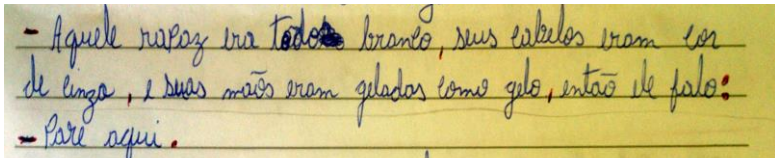 - Aquele rapaz era todo branco, seus cabelos eram cor
de cinza, e suas mãos eram geladas como gelo, então ele falo:
- Pare aqui.